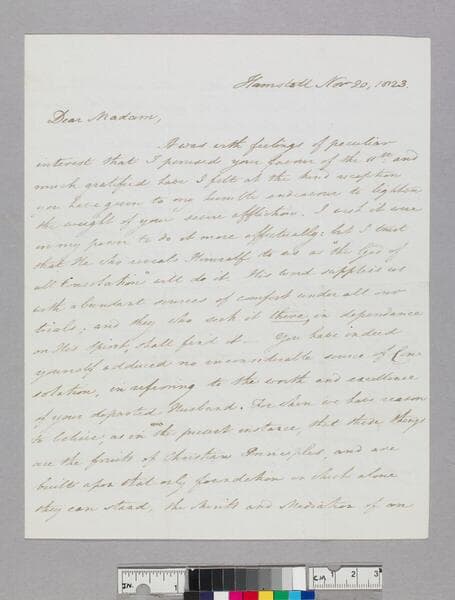 Hamstall Nov 20, 1823.
Dear Madam,
It was with feelings of peculiar
interest that I perused your favour of the 11th and
much gratified have I felt at the kind reception
you have given to my humble endeavour to lighten
the weight of your severe affliction. I wish it were
in my power to do it more effectually: but I trust
that He who reveals Himself to us as "the God of
all Consolation" will do it. His word supplies us
with abundant sources of comfort under all our
trials; and they who seek it there, in dependance
on His Spirit, shall find it — You have indeed
yourself adduced no inconsiderable source of Con
solation, in referring to the worth and excellence
of your departed Husband. For when we have reason
to believe, as in the present instance, that these things
are the fruits of Christian Principles, and are
built upon that only foundation on which alone
they can stand, the Merits and Mediation of our
IN. 1 2 CM 1 2 3